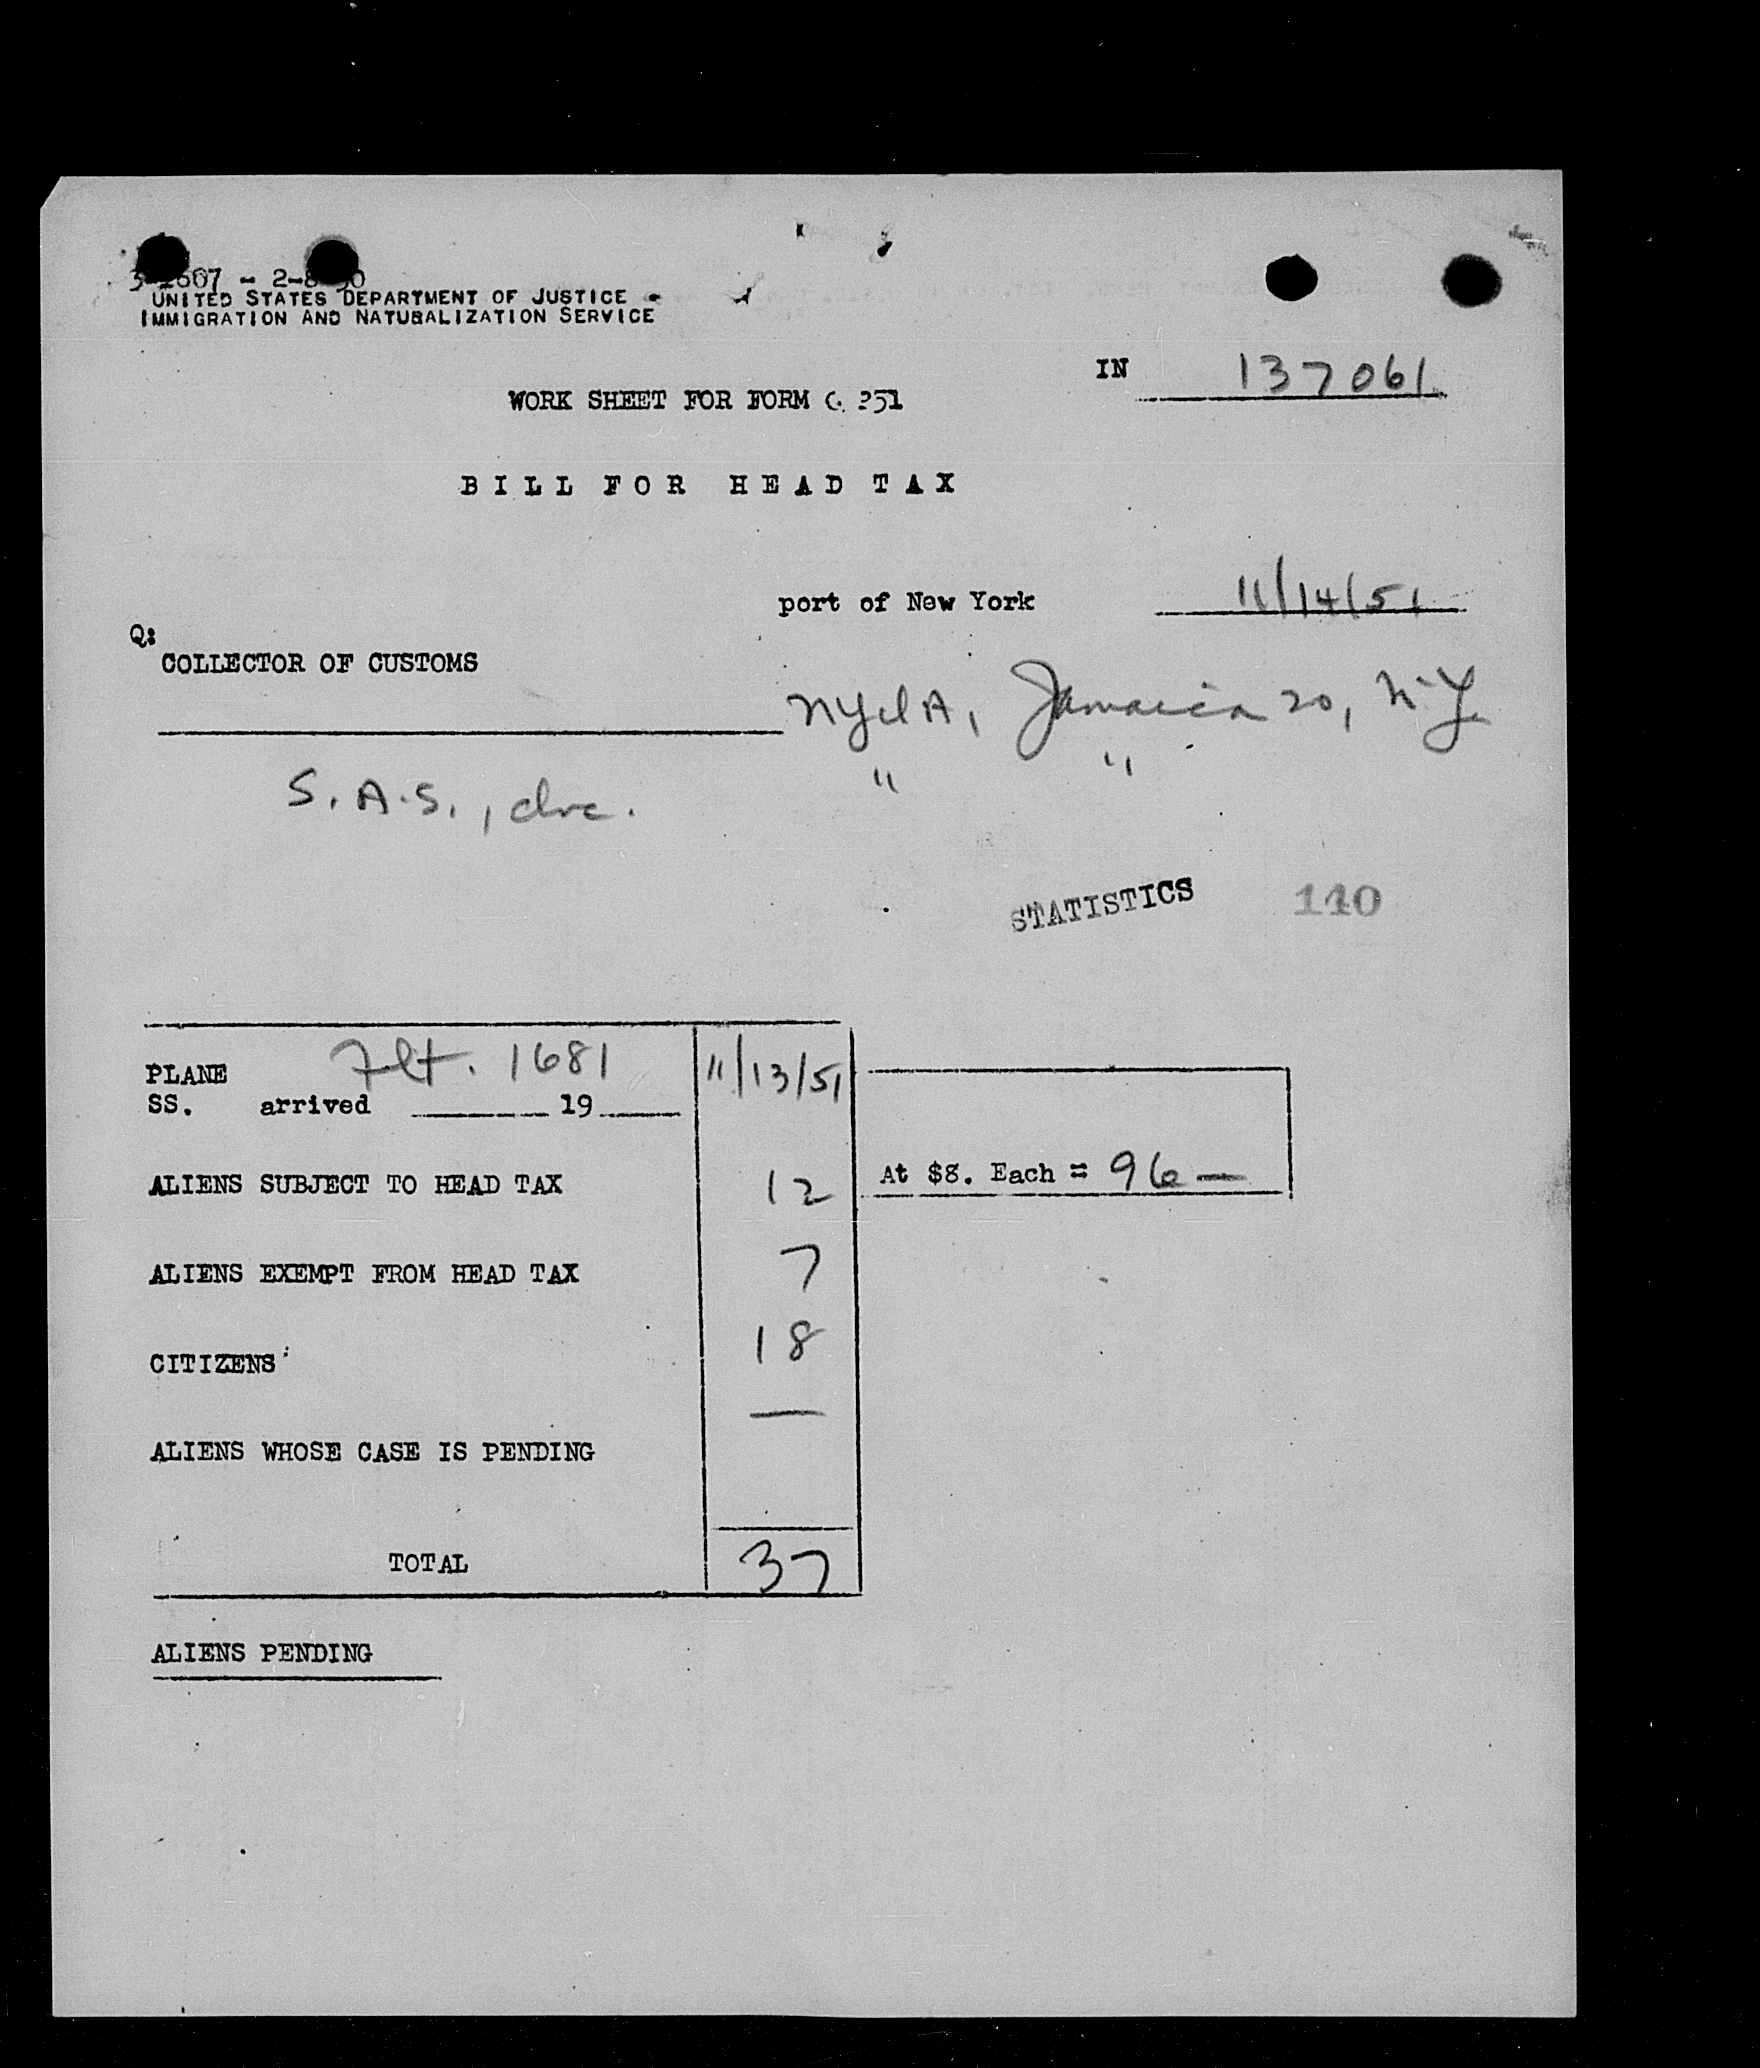 UNITED STATES DEPARTMENT OF JUSTICE -
IMMIGRATION AND NATURALIZATION SERVICE
IN 137061
WORK SHEET FOR FORM 251
BILL FOR HEAD TAX
port of New York 11/14/51
COLLECTOR OF CUSTOMS
Jamaica 20, N.Y.
" "
S.A.S.,
STATISTICS 110
PLANE Flt. 1681 11/13/51
SS. arrived 19
ALIENS SUBJECT TO HEAD TAX 12 At $8. Each = 96 —
ALIENS EXEMPT FROM HEAD TAX 7
CITIZENS 18
—
ALIENS WHOSE CASE IS PENDING
TOTAL 37
ALIENS PENDING